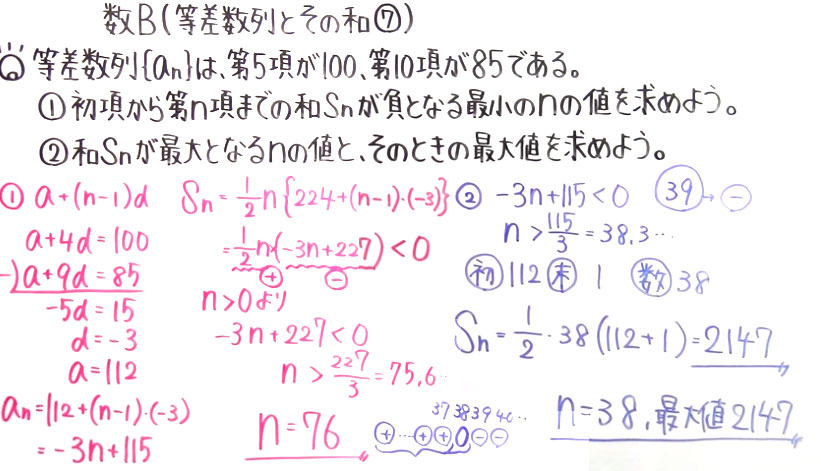 数B(等差数列とその和⑦)
等差数列{an}は、第5項が100、第10項が85である。
①初項から第n項までの和Snが負となる最小のnの値を求めよう。
②和Snが最大となるnの値と、そのときの最大値を求めよう。
① a+(n-1)d
a+4d=100
-)a+9d=85
-5d=15
d=-3
a=112
an=112+(n-1)・(-3)
=-3n+115
Sn=1/2n{224+(n-1)・(-3)}
=1/2n(-3n+227)<0
⊕ ⊖
n>0より
-3n+227<0
n>227/3=75.6…
n=76
② -3n+115<0 ㊴→⊖
n>115/3=38.3…
初112 末 1 数38
Sn=1/2・38(112+1)=2147
37 38 39 40…
⊕…⊕⊕,0⊖⊖
n=38,最大値2147